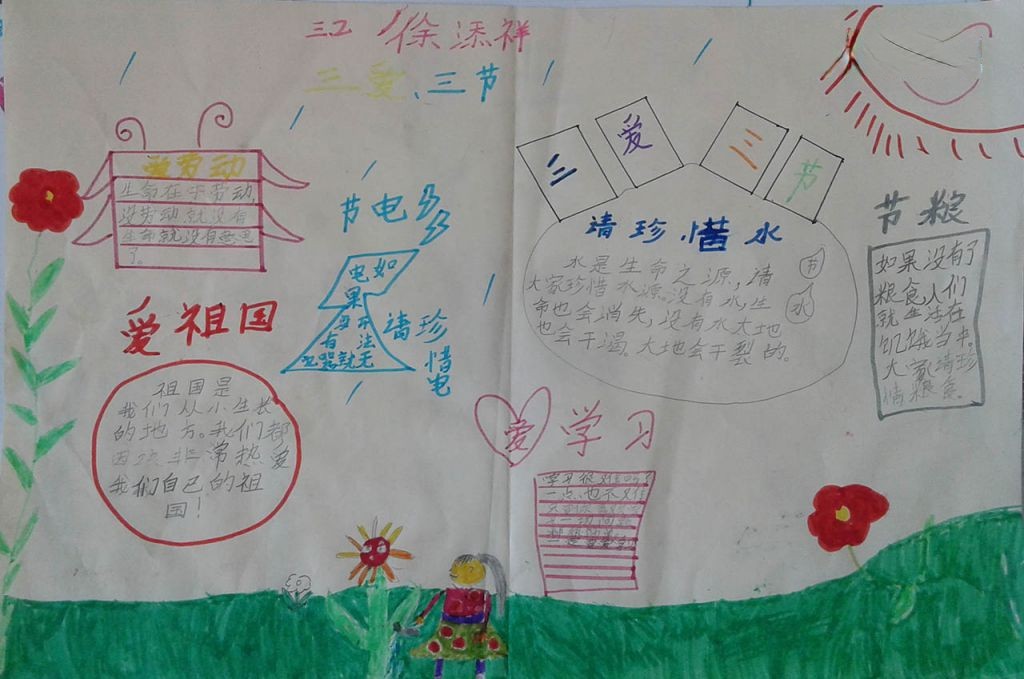 三 徐添祥
三爱、三节
爱劳动
生命在于劳动,
没劳动就没有
生命就没有
了。
爱祖国
祖国是
我们从小生长
的地方。我们都
非常热爱
我们自己的祖
国!
节电
如
电
果
没
有
无法
电器就
请珍
惜
电
三
爱
三
节
请珍惜水
水是生命之源,请
大家珍惜水源,没有水,生
命也会消失,没有水大地
也会干渴。大地会干裂的。
节
水
爱学习
学习很难吗?
一点也不难
节粮
如果没有了
粮食,人们
就生活在
饥饿当中。
大家请珍
惜粮食。